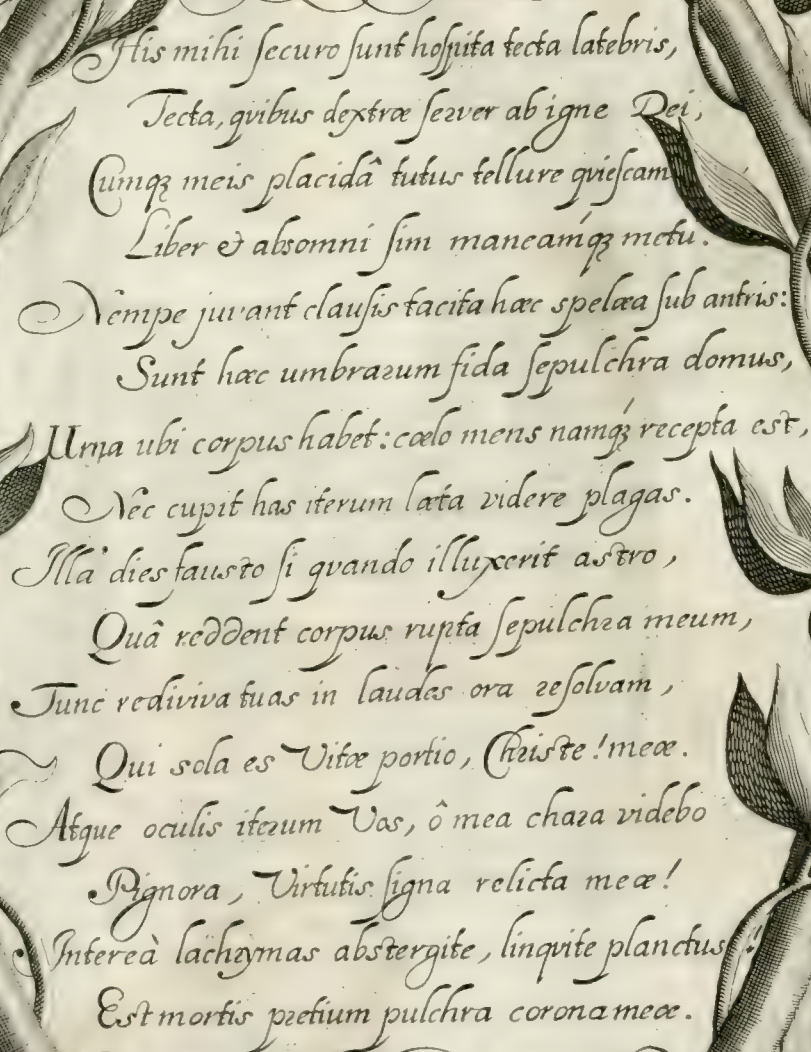 His mihi securo sunt hospita tecta latebris,
Tecta, qvibus dextræ server ab igne Dei,
Cumqꝫ meis placidâ tutus tellure qviescam
Liber & absomni sim maneamq́ꝫ metu.
Nempe juvant clausis tacita hæc spelæa sub antris:
Sunt hæc umbrarum fida sepulchra domus,
Urna ubi corpus habet: cœlo mens namq́ꝫ recepta est,
Nec cupit has iterum læta videre plagas.
Illa dies fausto si qvando illuxerit astro,
Quâ reddent corpus rupta sepulchra meum,
Tunc rediviva tuas in laudes ora resolvam,
Qui sola es Vitæ portio, Christe! meæ.
Atque oculis iterum Vos, ô mea chara videbo
Pignora, Virtutis signa relicta meæ!
Intereà lachrymas abstergite, linqvite planctus!
Est mortis pretium pulchra corona meæ.